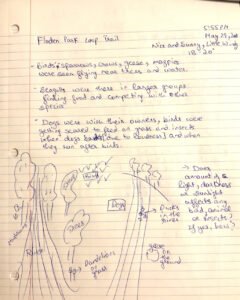 5:55 PM
Fladen Park Loop Trail
May 25, 20
Nice and Sunny, Little Windy
18° 20°
• Birds: sparrows, crows, geese, magpies
were seen flying near trees and water.
• Seagulls were there in larger groups
finding food and competing with other
species
• Dogs were with their owners, birds were
getting scared to feed on grass and insects
when dogs (due to loudness) and when
they run after birds.
→ Does
amount of
light, darkness
or sunlight
affects any
bird, animal
or insects?
if yes, how?
Dogs
Trees
Ducks
in the
Dandelion
on grass
geese
on
the
ground